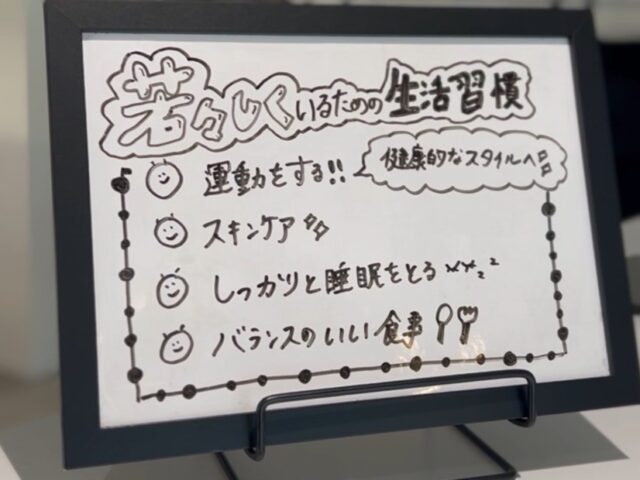 若々しくいるための生活習慣
運動をする!!
健康的なスタイルへ
スキンケア
しっかりと睡眠をとる zz
バランスのいい食事